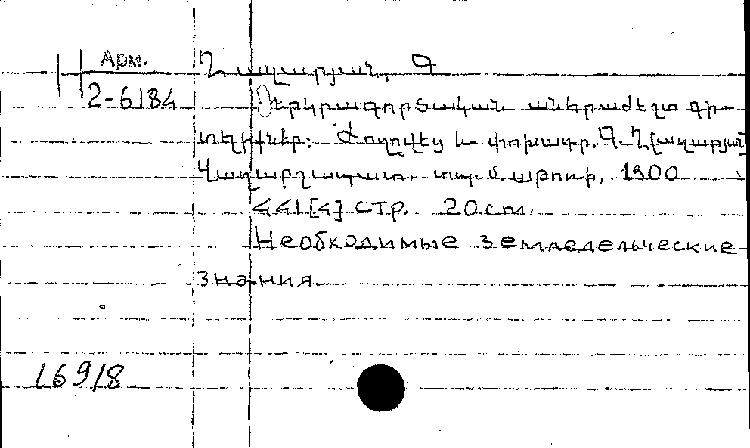 Арм.
2-6184
Ղազարյան, Գ
Երկրագործական անհրաժեշտ գի-
տելիքներ. Ժողովեց և փոխադր. Գ. Ղ[ազարյան]
Վաղարշապատ. տպ. Ս. Աթոռի, 1900
441[4] стр. 20 cm.
Необходимые земледельческие
знания
16918